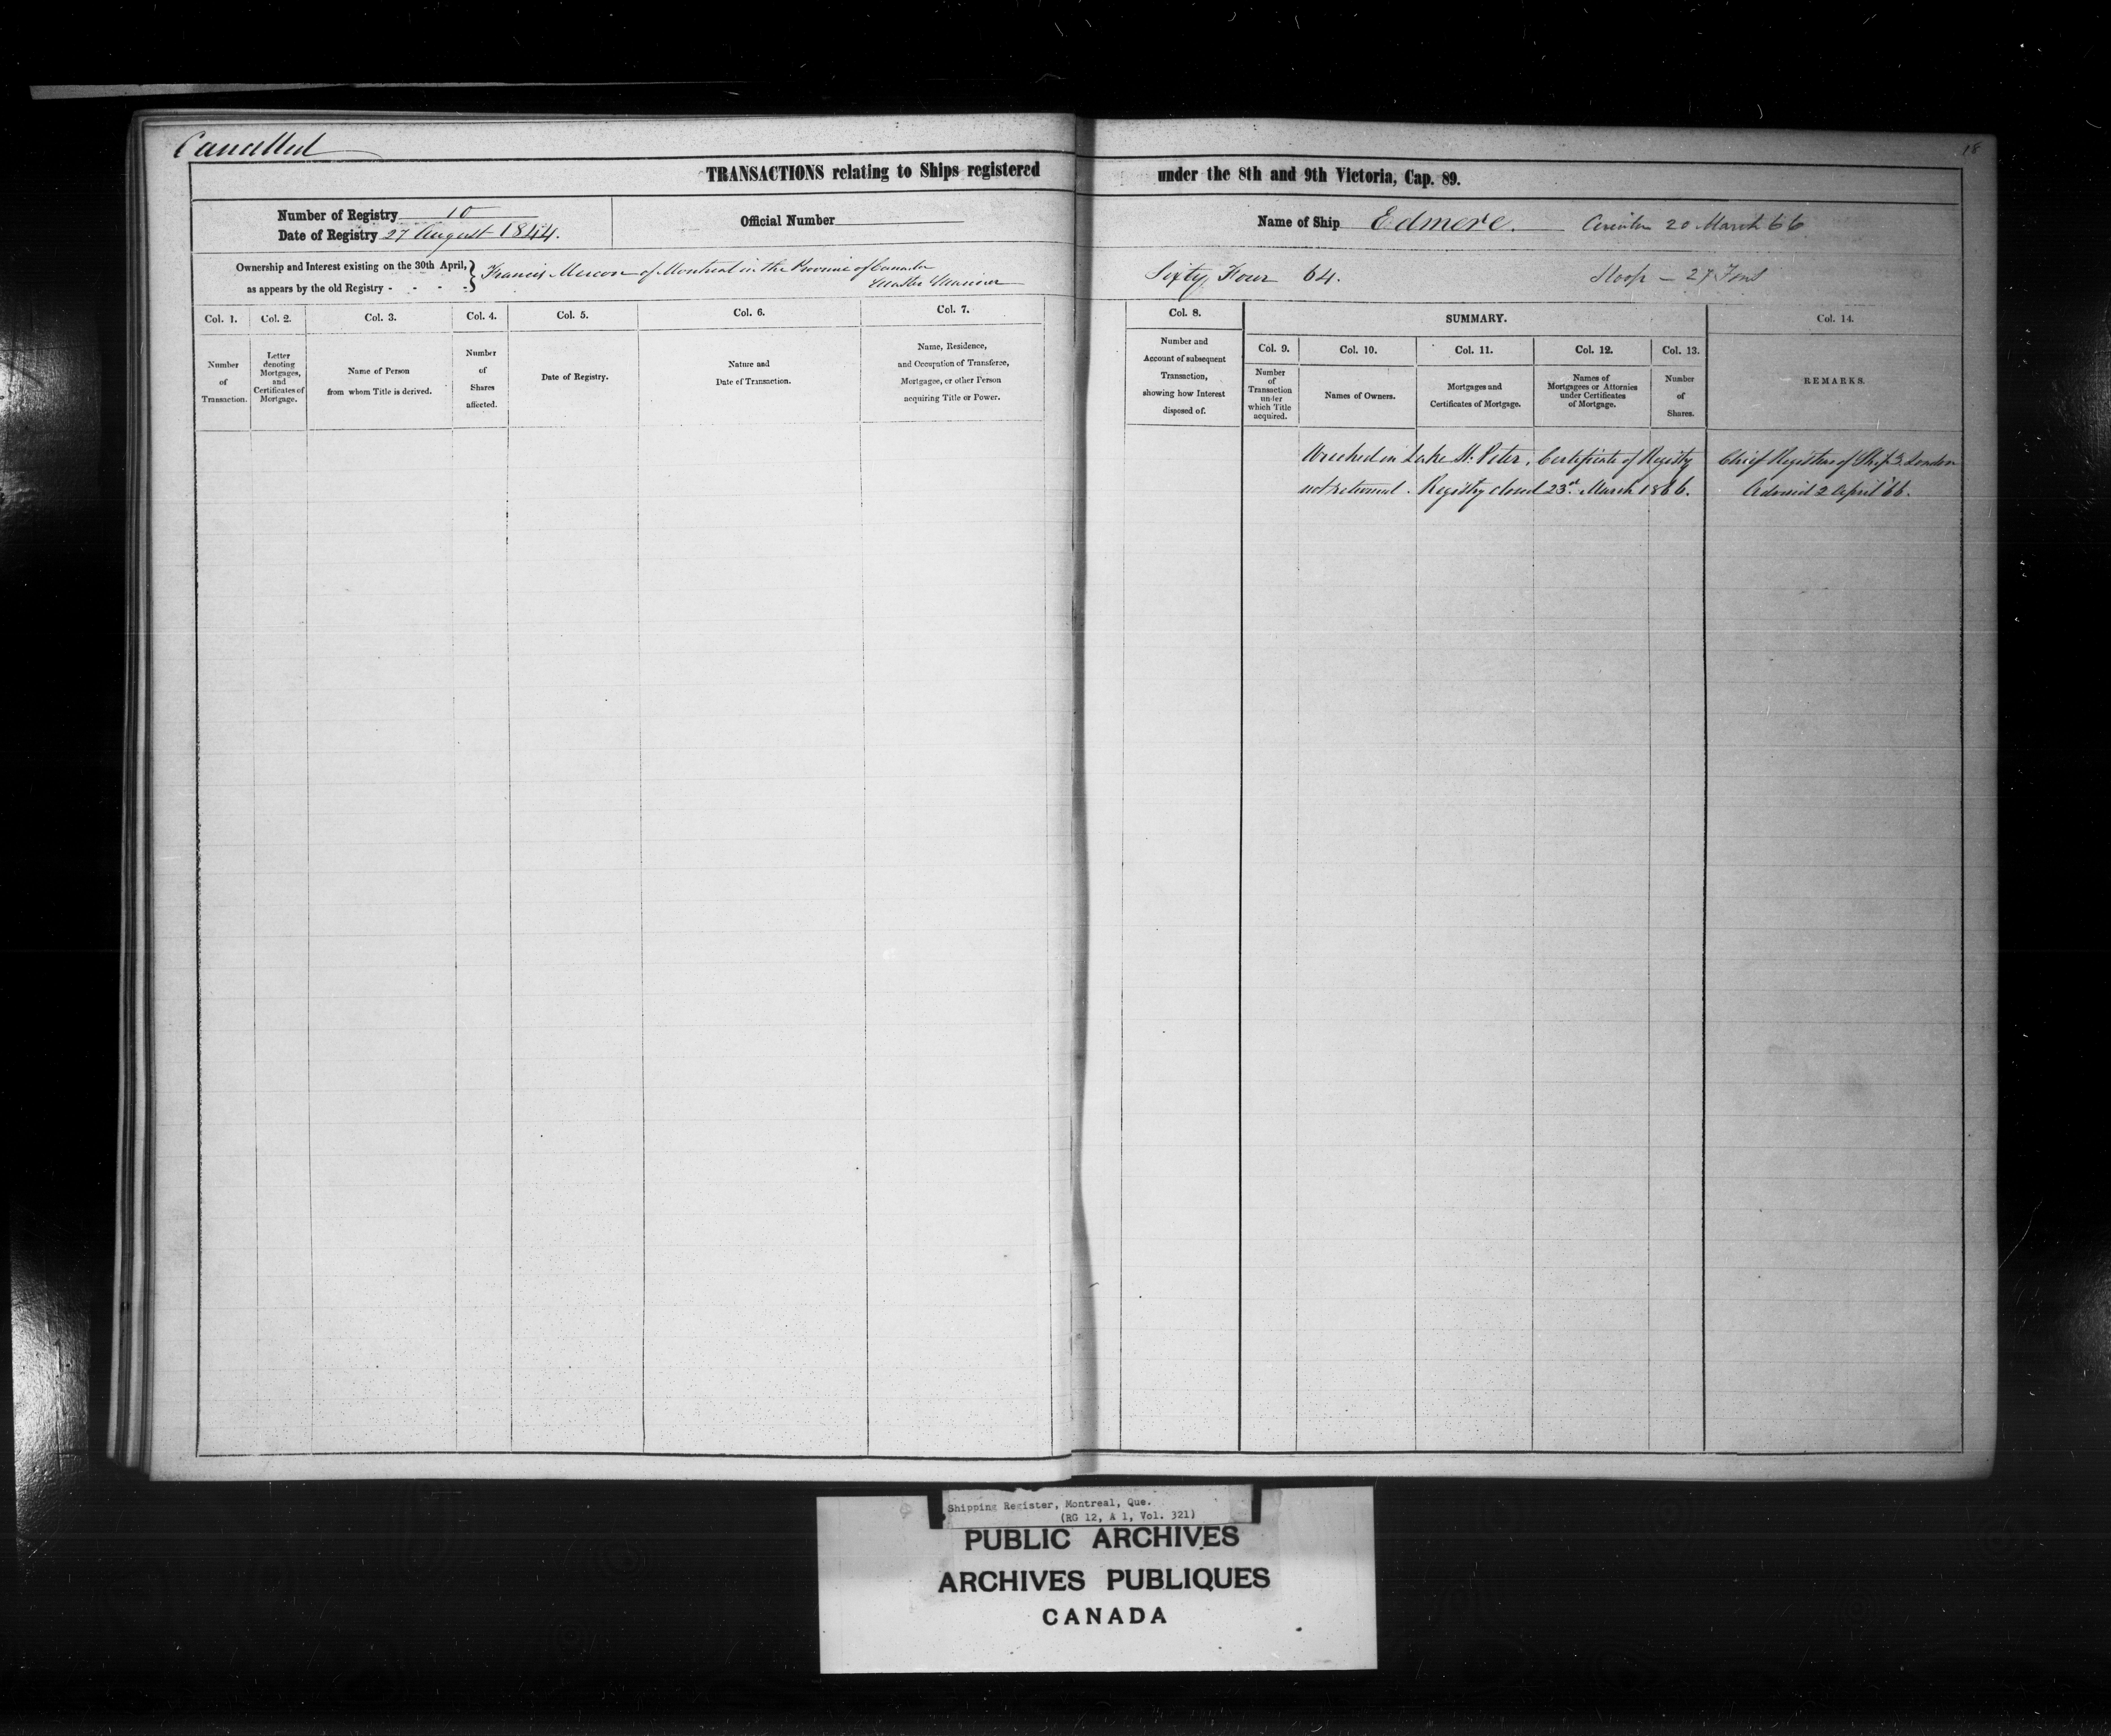 Cancelled
18
TRANSACTIONS relating to Ships registered under the 8th and 9th Victoria, Cap. 89.
Number of Registry 10
Date of Registry 27 August 1844.
Official Number
Name of Ship Edmere. 20 March 66
Ownership and Interest existing on the 30th April, as appears by the old Registry - - - -
Francis of Montreal in the Province of Canada
Master Mariner
Sixty Four 64.
Sloop — 27 Tons
Col. 1.
Number
of
Transaction.
Col. 2.
Letter
denoting
Mortgages,
and
Certificates of
Mortgage.
Col. 3.
Name of Person
from whom Title is derived.
Col. 4.
Number
of
Shares
affected.
Col. 5.
Date of Registry.
Col. 6.
Nature and
Date of Transaction.
Col. 7.
Name, Residence,
and Occupation of Transferee,
Mortgagee, or other Person
acquiring Title or Power.
Col. 8.
Number and
Account of subsequent
Transaction,
showing how Interest
disposed of.
SUMMARY.
Col. 9.
Number
of
Transaction
under
which Title
acquired.
Col. 10.
Names of Owners.
Col. 11.
Mortgages and
Certificates of Mortgage.
Col. 12.
Names of
Mortgagees or Attornies
under Certificates
of Mortgage.
Col. 13.
Number
of
Shares.
Col. 14.
REMARKS.
Wrecked in Lake St. Peter, Certificate of Registry
not returned. Registry closed 23rd. March 1866.
Chief Registrar of Ships London
Advised 2 April 66.
Shipping Register, Montreal, Que.
(RG 12, A 1, Vol. 321)
PUBLIC ARCHIVES
ARCHIVES PUBLIQUES
CANADA